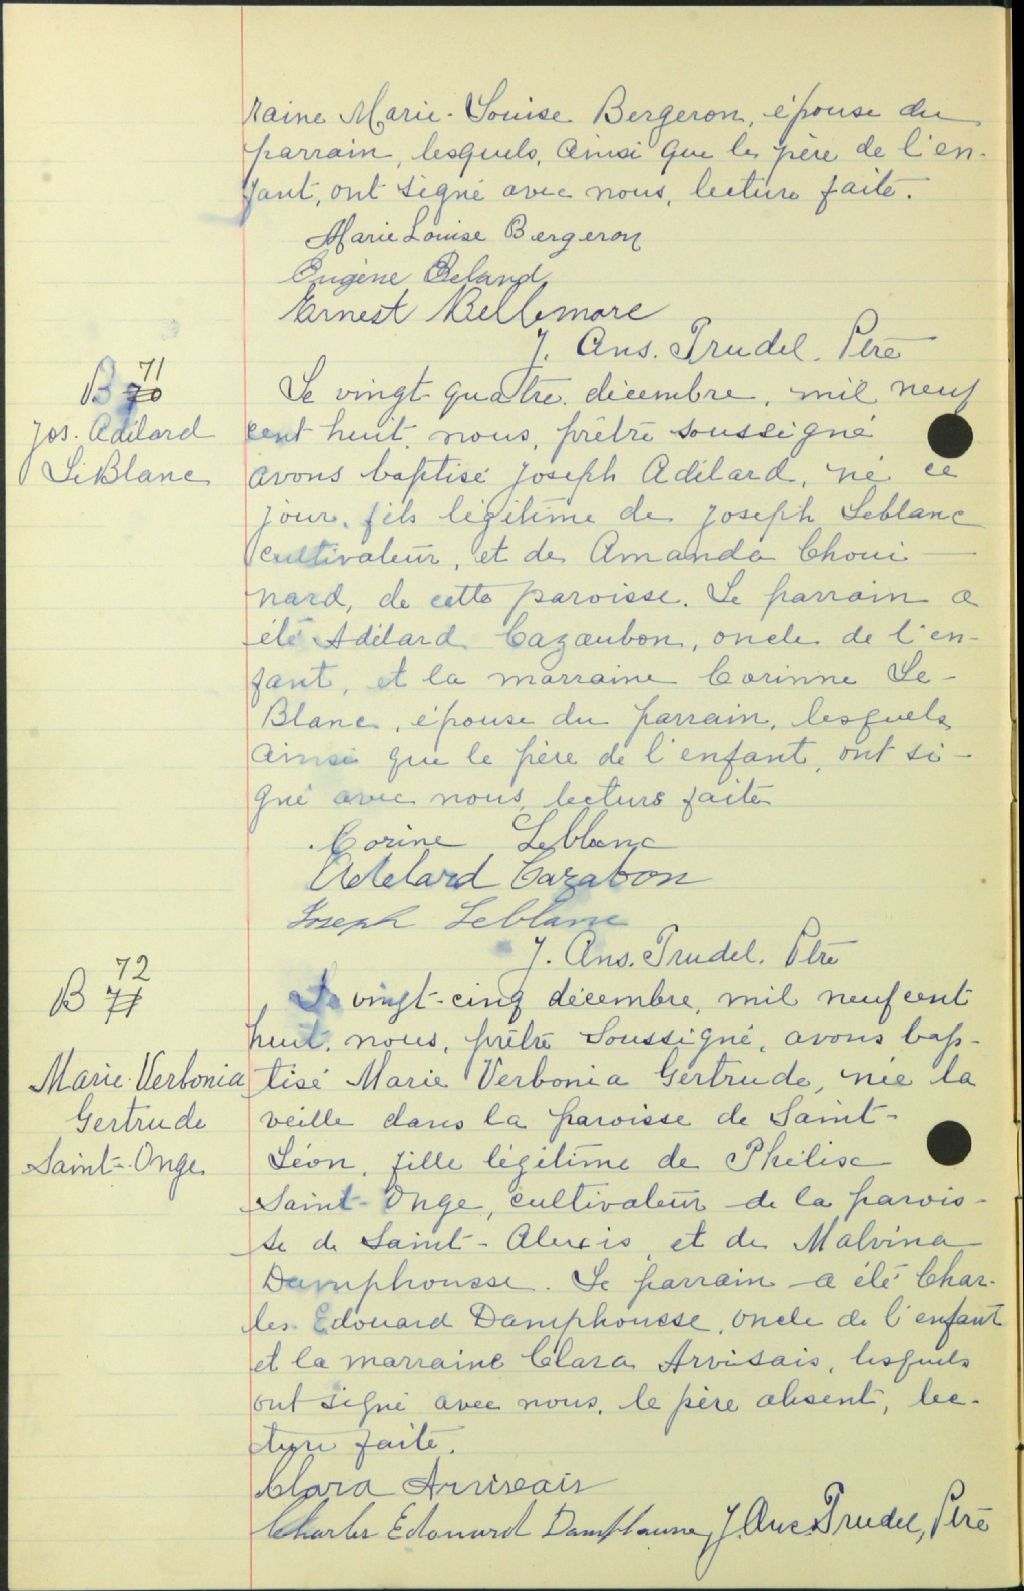 raine Marie-Louise Bergeron, épouse du
parrain, lesquels, ainsi que le père de l'en-
fant, ont signé avec nous, lecture faite.
Marie Louise Bergeron
Eugène Beland
Ernest Bellemare
J. Ans. Trudel. Ptre
B 71 70
Jos. Adélard
LeBlanc
Le vingt-quatre décembre, mil neuf
cent huit, nous, prêtre soussigné
avons baptisé Joseph Adélard, né ce
jour, fils légitime de Joseph Leblanc
cultivateur, et de Amanda Choui
nard, de cette paroisse. Le parrain a
été Adélard Cazaubon, oncle de l'en-
fant, et la marraine Corinne Le-
Blanc, épouse du parrain, lesquels
ainsi que le père de l'enfant, ont si-
gné avec nous, lecture faite
Corine Leblanc
Adelard Cazabon
Joseph Leblanc
J. Ans. Trudel. Ptre
B 72 71
Marie-Verbonia
Gertrude
Saint-Onge
Le vingt-cinq décembre, mil neuf cent
huit, nous, prêtre soussigné, avons bap-
tisé Marie Verbonia Gertrude, née la
veille dans la paroisse de Saint-
Léon, fille légitime de Phélise
Saint-Onge, cultivateur de la parois-
se de Saint-Alexis, et de Malvina
Damphousse. Le parrain a été Char-
les Edouard Damphousse, oncle de l'enfant
et la marraine Clara Arvisais, lesquels
ont signé avec nous, le père absent, lec-
ture faite.
Clara Arviseais
Charles Edouard Damphousse, J. Ans. Trudel, Ptre